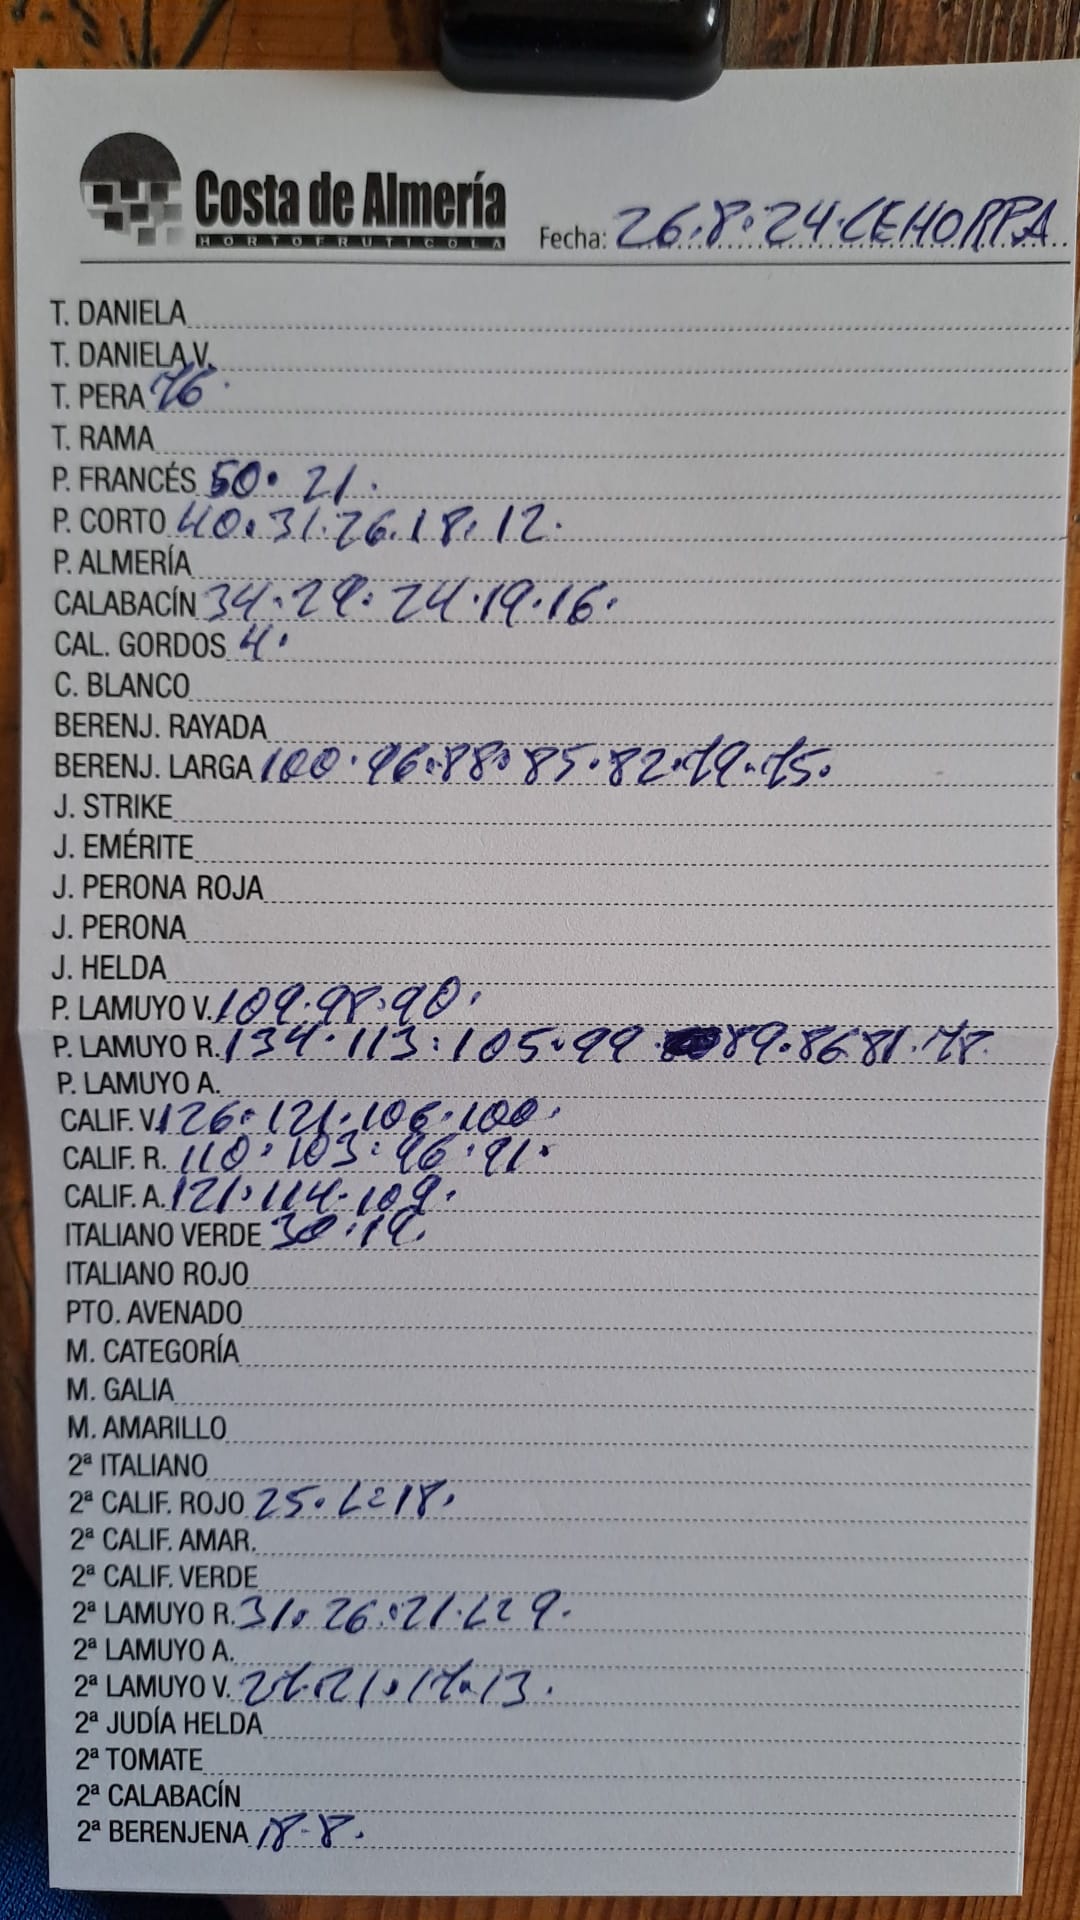 Costa de Almería
HORTOFRUTICOLA
Fecha: 26.8.24.CEHORPA
T. DANIELA
T. DANIELA V.
T. PERA 76.
T. RAMA
P. FRANCÉS 50. 21.
P. CORTO 40.31.26.18.12.
P. ALMERÍA
CALABACÍN 34.29.24.19.16.
CAL. GORDOS 4.
C. BLANCO
BERENJ. RAYADA
BERENJ. LARGA 100.96.88.85.82.79.75.
J. STRIKE
J. EMÉRITE
J. PERONA ROJA
J. PERONA
J. HELDA
P. LAMUYO V. 109.98.90.
P. LAMUYO R. 134.113.105.99 89.86 81.78.
P. LAMUYO A.
CALIF. V. 126.121.106.100.
CALIF. R. 110.103.96.91.
CALIF. A. 121.114.109.
ITALIANO VERDE 30.19.
ITALIANO ROJO
PTO. AVENADO
M. CATEGORÍA
M. GALIA
M. AMARILLO
2ª ITALIANO
2ª CALIF. ROJO 25. 18.
2ª CALIF. AMAR.
2ª CALIF. VERDE
2ª LAMUYO R. 31.26.21. 9.
2ª LAMUYO A.
2ª LAMUYO V. 27.21.17.13.
2ª JUDÍA HELDA
2ª TOMATE
2ª CALABACÍN
2ª BERENJENA 18.8.